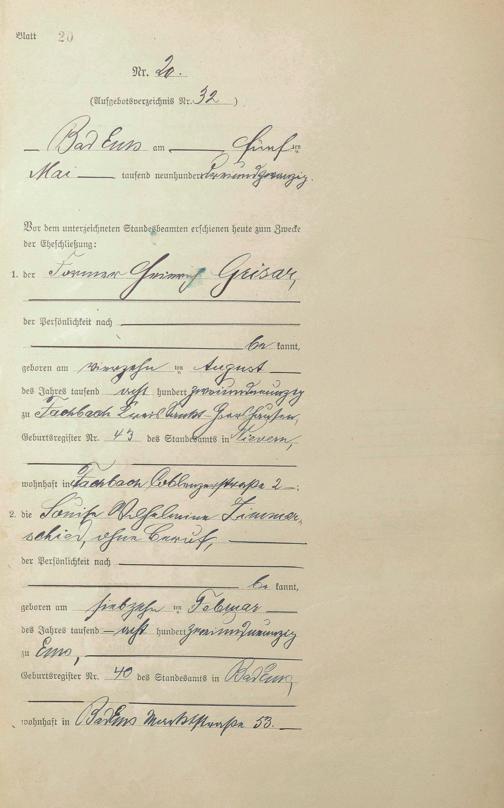 Blatt 20
Nr. 20.
(Aufgebotsverzeichnis Nr. 32 )
Bad Ems am fünf ten
Mai tausend neunhundert dreiundzwanzig.
Vor dem unterzeichneten Standesbeamten erschienen heute zum Zwecke
der Eheschließung:
1. der Former Heinrich Grisar,
der Persönlichkeit nach
be kannt,
geboren am vierzehn ten August
des Jahres tausend acht hundert zweiundneunzig
zu Fachbach Kreis Sankt-Goarshausen,
Geburtsregister Nr. 43 des Standesamts in Nievern,
wohnhaft in Fachbach Coblenzerstraße 2 ;
2. die Louise Wilhelmine Zimmer-
schied, ohne Beruf,
der Persönlichkeit nach
be kannt,
geboren am siebzehn ten Februar
des Jahres tausend acht hundert zweiundneunzig
zu Ems,
Geburtsregister Nr. 40 des Standesamts in Bad Ems,
wohnhaft in Bad Ems Marktstraße 53.